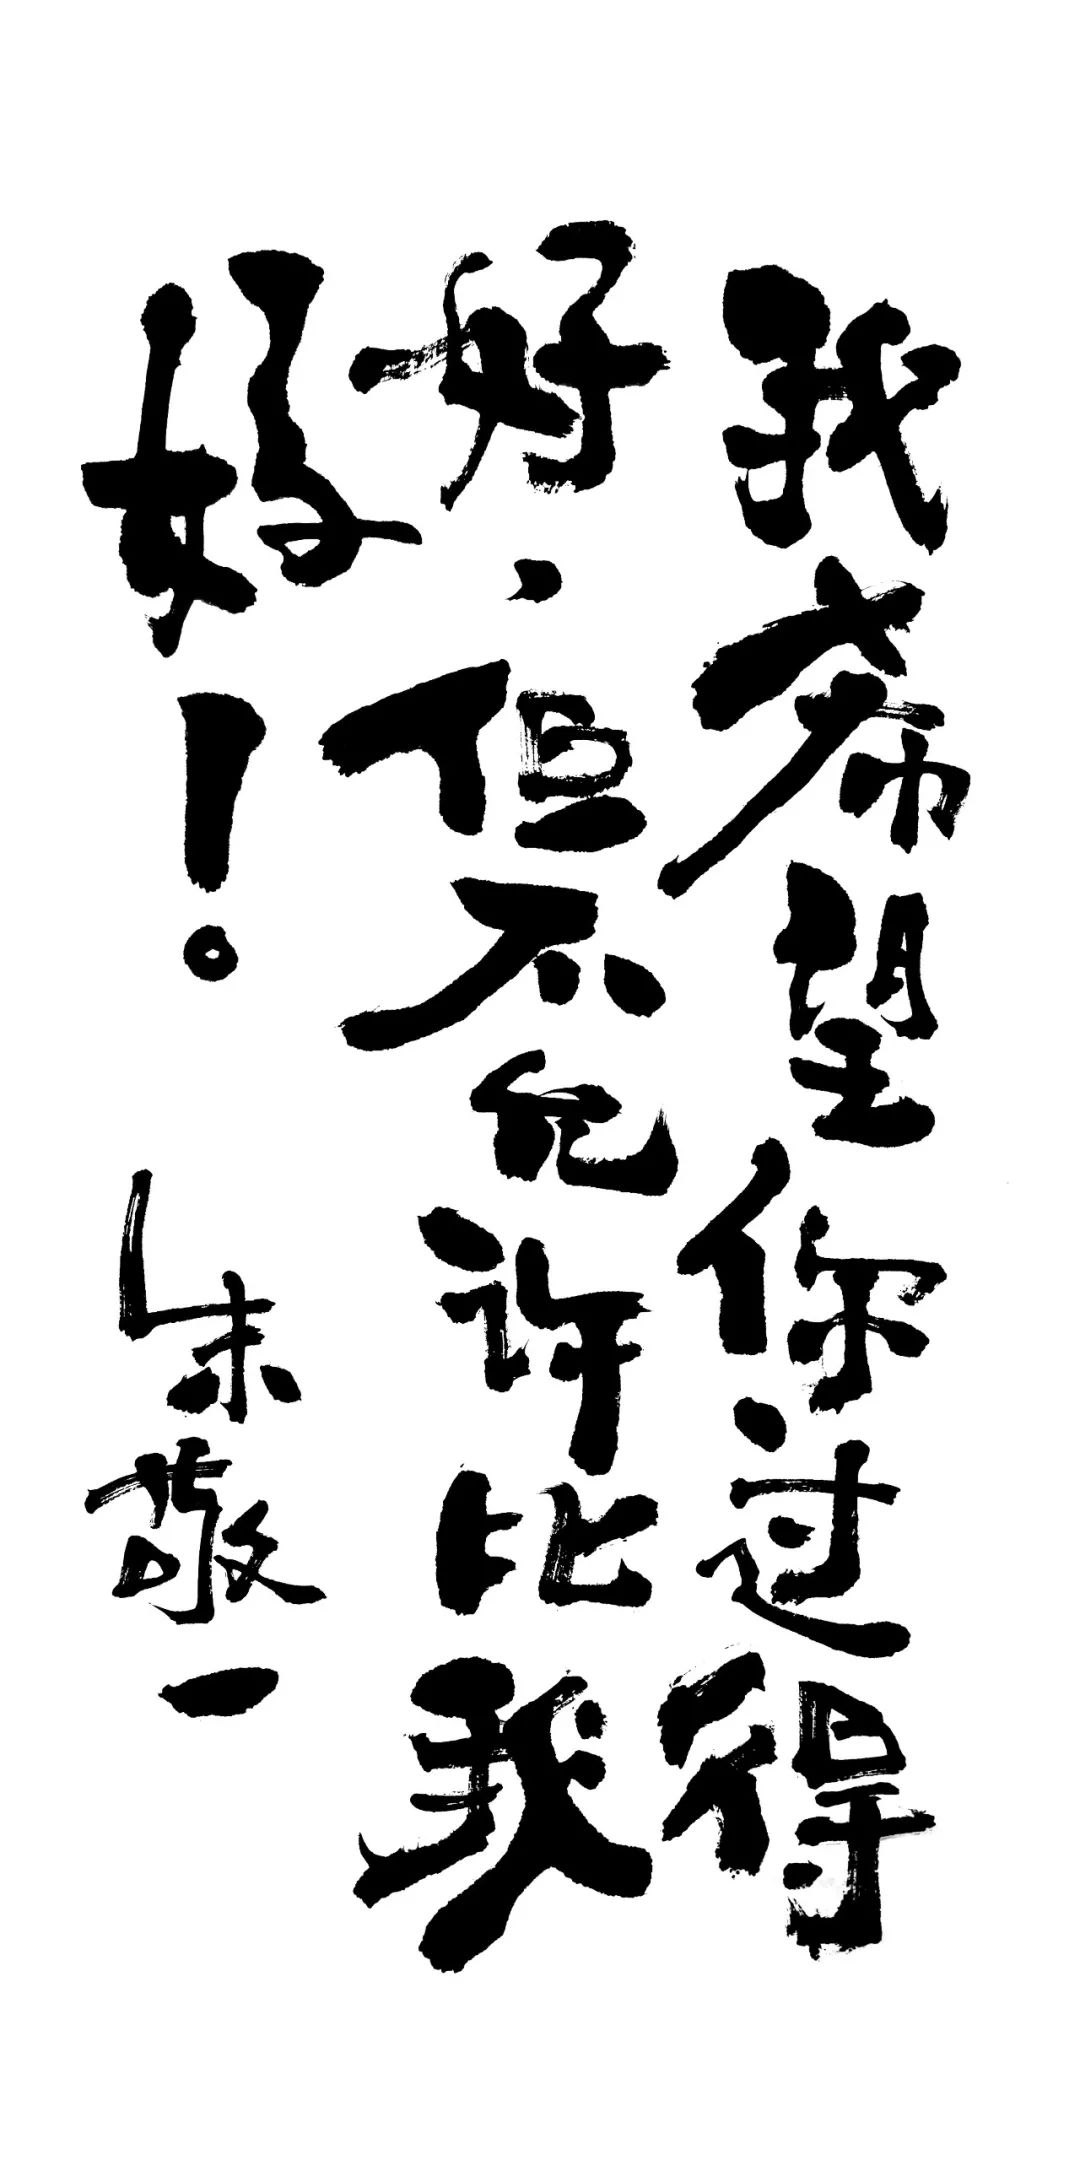 我希望你过得
好，但不允许比我
好！
朱敬一